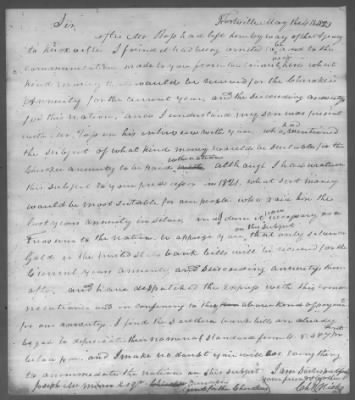 Fortville May the 4 1823
Sir,
after Mr Ross had left here by way of the Agency
to I found it had being omitted and to the
communication made to you from the council, here what
kind money that would be received for the Cherokee
Annuity for the current year, and the succeeding annuity
for this nation, and I understand my son was present
with Mr. Ross in his interview with you, who mentioned
the subject of what kind money would be suitable for the
Cherokee annuity to be paid although I have written
this subject to your predecessor in 1821, what sort money
would be most suitable for our people who paid him the
last years annuity in dollars and deem it necessary as a
Treasurer to the nation to apprize you on the subject that only silver or
Gold or the united States bank bills will be received for the
Current years annuity and succeeding annuitys there
after, and have despatched the express with this commu
nication and in confirming to the of
for our annuity. I find the Southern bank bills are already
began to depreciate their nominal standard from 4. 5. & 8 pr cent
below par, and I make no doubt you will do everything
to accommodate the nation on this subject. I am
your friend & brother
Joseph McMinn Esqr
Agent for the Cherokee
Ch. R. Hicks